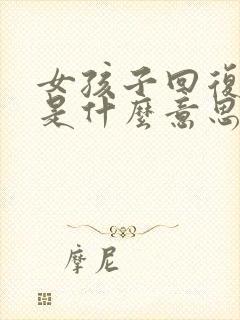 女孩子回復
是什麼意思
摩尼